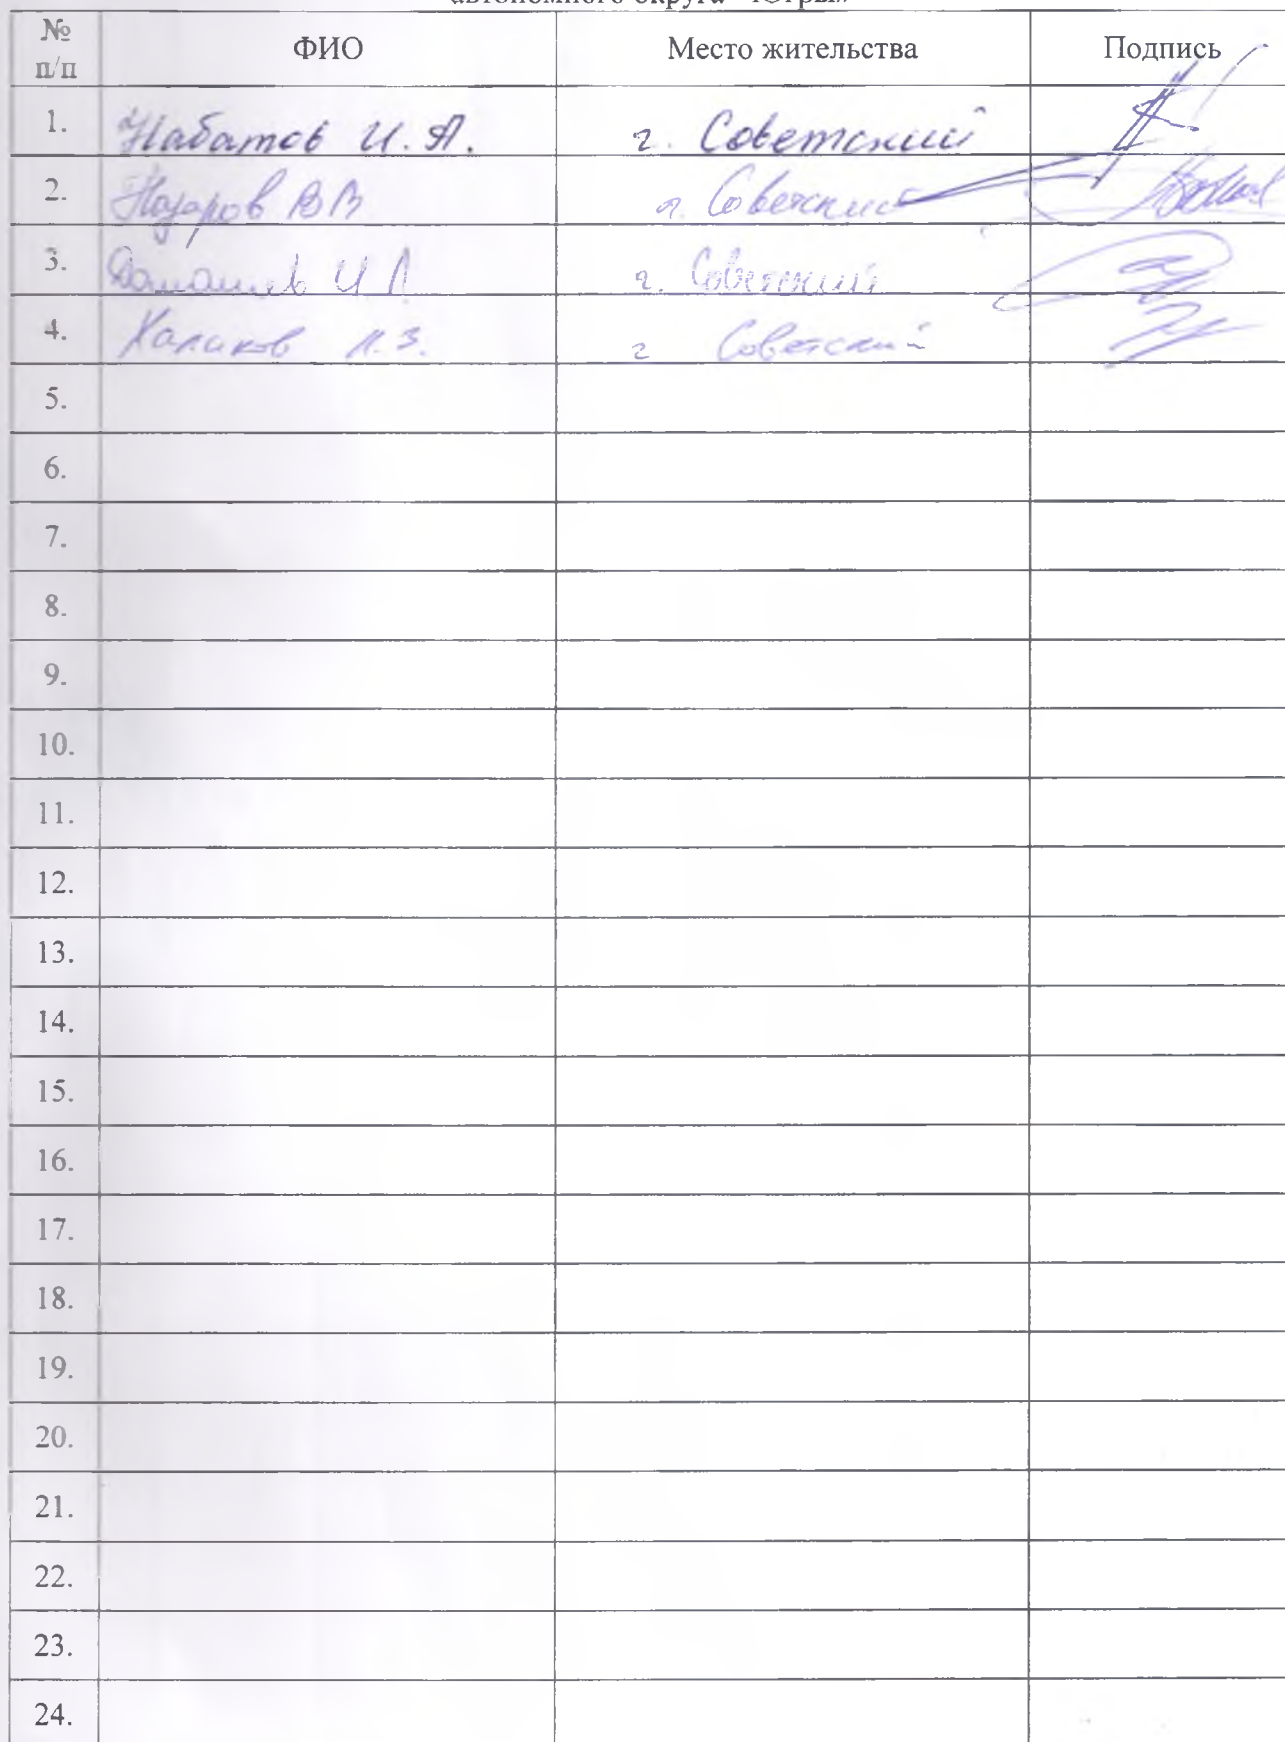 автономного округа – Югры»
№ п/п ФИО Место жительства Подпись
1. Набатов И.А. г. Советский
2. Назаров В В г. Советский
3. И г. Советский
4. г Советский
5.
6.
7.
8.
9.
10.
11.
12.
13.
14.
15.
16.
17.
18.
19.
20.
21.
22.
23.
24.